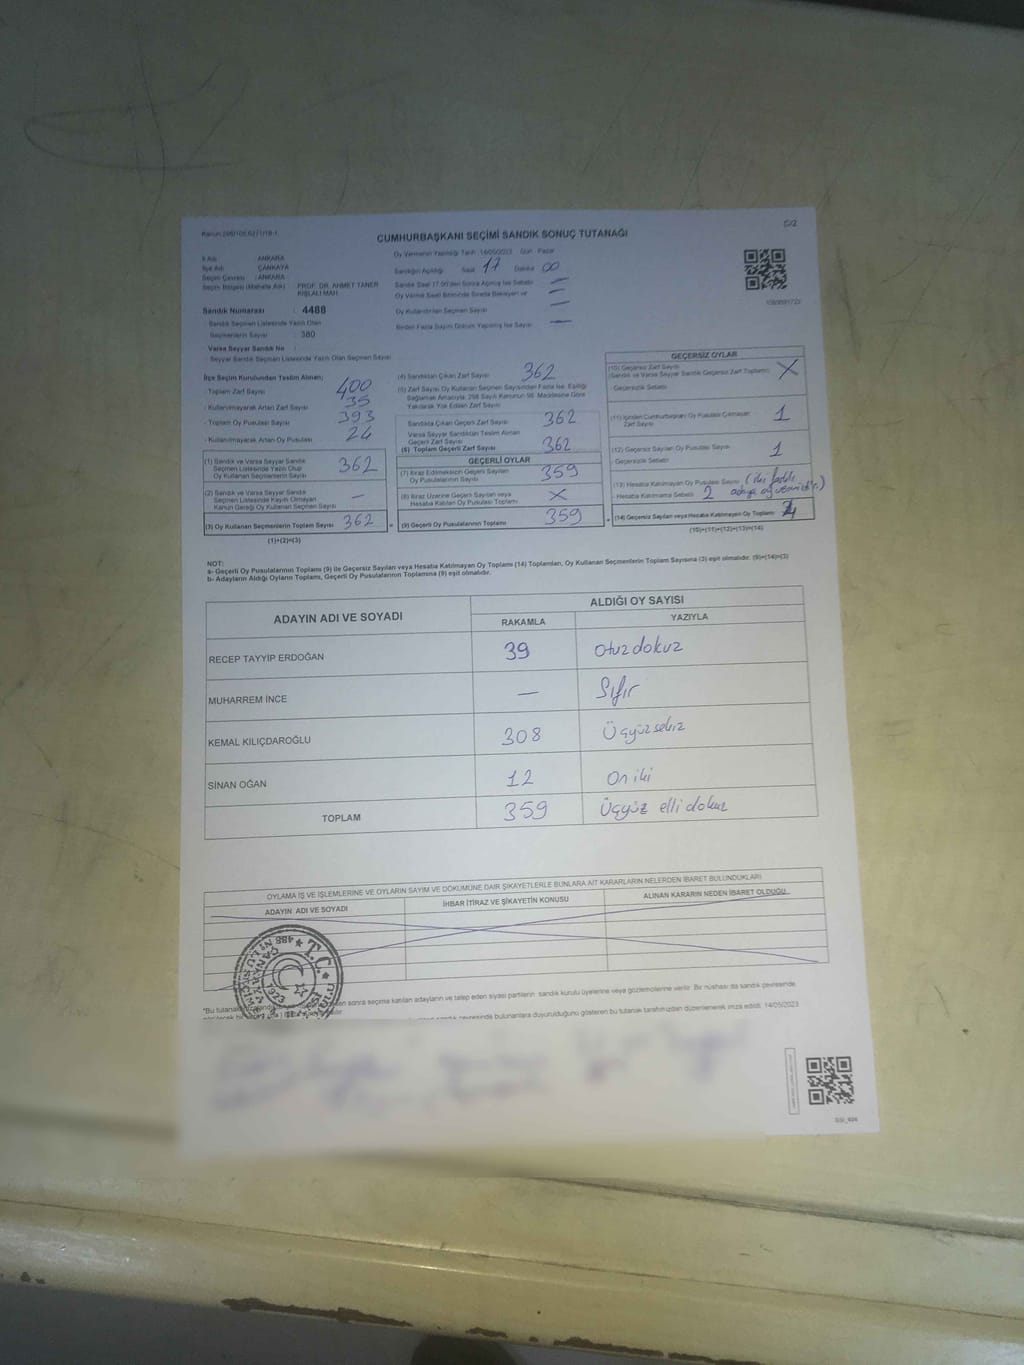 C/2
CUMHURBAŞKANI SEÇİMİ SANDIK SONUÇ TUTANAĞI
İl Adı : ANKARA
İlçe Adı : ÇANKAYA
Seçim Çevresi : ANKARA
Seçim Bölgesi (Mahalle Adı) : PROF. DR. AHMET TANER KIŞLALI MAH.
Sandık Numarası : 4488
Sandık Seçmen Listesinde Yazılı Olan
Seçmenlerin Sayısı : 380
Varsa Seyyar Sandık No :
Seyyar Sandık Seçmen Listesinde Yazılı Olan Seçmen Sayısı
Oy Vermenin Yapıldığı Tarih 14/05/2023 Gün Pazar
Sandığın Açıldığı Saat 17 Dakika 00
Sandık Saat 17.00'den Sonra Açılmış İse Sebebi —
Oy Verme Saati Bitiminde Sırada Bekleyen ve —
Oy Kullandırılan Seçmen Sayısı —
Birden Fazla Sayım Döküm Yapılmış İse Sayısı —
İlçe Seçim Kurulundan Teslim Alınan;
- Toplam Zarf Sayısı 400
- Kullanılmayarak Artan Zarf Sayısı 35
- Toplam Oy Pusulası Sayısı 393
- Kullanılmayarak Artan Oy Pusulası 24
(1) Sandık ve Varsa Seyyar Sandık
Seçmen Listesinde Yazılı Olup
Oy Kullanan Seçmenlerin Sayısı 362
(2) Sandık ve Varsa Seyyar Sandık
Seçmen Listesinde Kayıtlı Olmayan
Kanun Gereği Oy Kullanan Seçmenlerin Sayısı —
(3) Oy Kullanan Seçmenlerin Toplam Sayısı 362
(1)+(2)=(3)
(4) Sandıktan Çıkan Zarf Sayısı 362
(5) Zarf Sayısı Oy Kullanan Seçmen Sayısından Fazla İse, Eşitliği
Sağlamak Amacıyla; 298 Sayılı Kanunun 98. Maddesine Göre
Yakılarak Yok Edilen Zarf Sayısı
Sandıkta Çıkan Geçerli Zarf Sayısı 362
Varsa Seyyar Sandıktan Teslim Alınan
Geçerli Zarf Sayısı
(6) Toplam Geçerli Zarf Sayısı 362
GEÇERLİ OYLAR
(7) İtiraz Edilmeksizin Geçerli Sayılan
Oy Pusulalarının Sayısı 359
(8) İtiraz Üzerine Geçerli Sayılan veya
Hesaba Katılan Oy Pusulası Toplamı X
(9) Geçerli Oy Pusulalarının Toplamı 359
GEÇERSİZ OYLAR
(10) Geçersiz Zarf Sayısı
(Sandık ve Varsa Seyyar Sandık Geçersiz Zarf Toplamı) X
- Geçersizlik Sebebi
(11) İçinden Cumhurbaşkanı Oy Pusulası Çıkmayan
Zarf Sayısı 1
(12) Geçersiz Sayılan Oy Pusulası Sayısı 1
- Geçersizlik Sebebi
(13) Hesaba Katılmayan Oy Pusulası Sayısı
- Hesaba Katılmama Sebebi 2
(14) Geçersiz Sayılan veya Hesaba Katılmayan Oy Toplamı
(10)+(11)+(12)+(13)=(14)
NOT:
a- Geçerli Oy Pusulalarının Toplamı (9) ile Geçersiz Sayılan veya Hesaba Katılmayan Oy Toplamı (14) Toplamları, Oy Kullanan Seçmenlerin Toplam Sayısına (3) eşit olmalıdır. (9)+(14)=(3)
b- Adayların Aldığı Oyların Toplamı, Geçerli Oy Pusulalarının Toplamına (9) eşit olmalıdır.
ADAYIN ADI VE SOYADI ALDIĞI OY SAYISI
RAKAMLA YAZIYLA
RECEP TAYYİP ERDOĞAN 39 Otuz dokuz
MUHARREM İNCE — Sıfır
KEMAL KILIÇDAROĞLU 308 Üçyüz sekiz
SİNAN OĞAN 12 On iki
TOPLAM 359 Üçyüz elli dokuz
OYLAMA İŞ VE İŞLEMLERİNE VE OYLARIN SAYIM VE DÖKÜMÜNE DAİR ŞİKAYETLERLE BUNLARA AİT KARARLARIN NELERDEN İBARET BULUNDUKLARI
ADAYIN ADI VE SOYADI İHBAR İTİRAZ VE ŞİKAYETİN KONUSU ALINAN KARARIN NEDEN İBARET OLDUĞU
T.C.
1923
*Bu tutanak sonra seçime katılan adayların ve talep eden siyasi partilerin sandık kurulu üyelerine veya gözlemcilerine verilir. Bir nüshası da sandık çevresinde
sandık çevresinde bulunanlara duyurulduğunu gösteren bu tutanak tarafımızdan düzenlenerek imza edildi. 14/05/2023